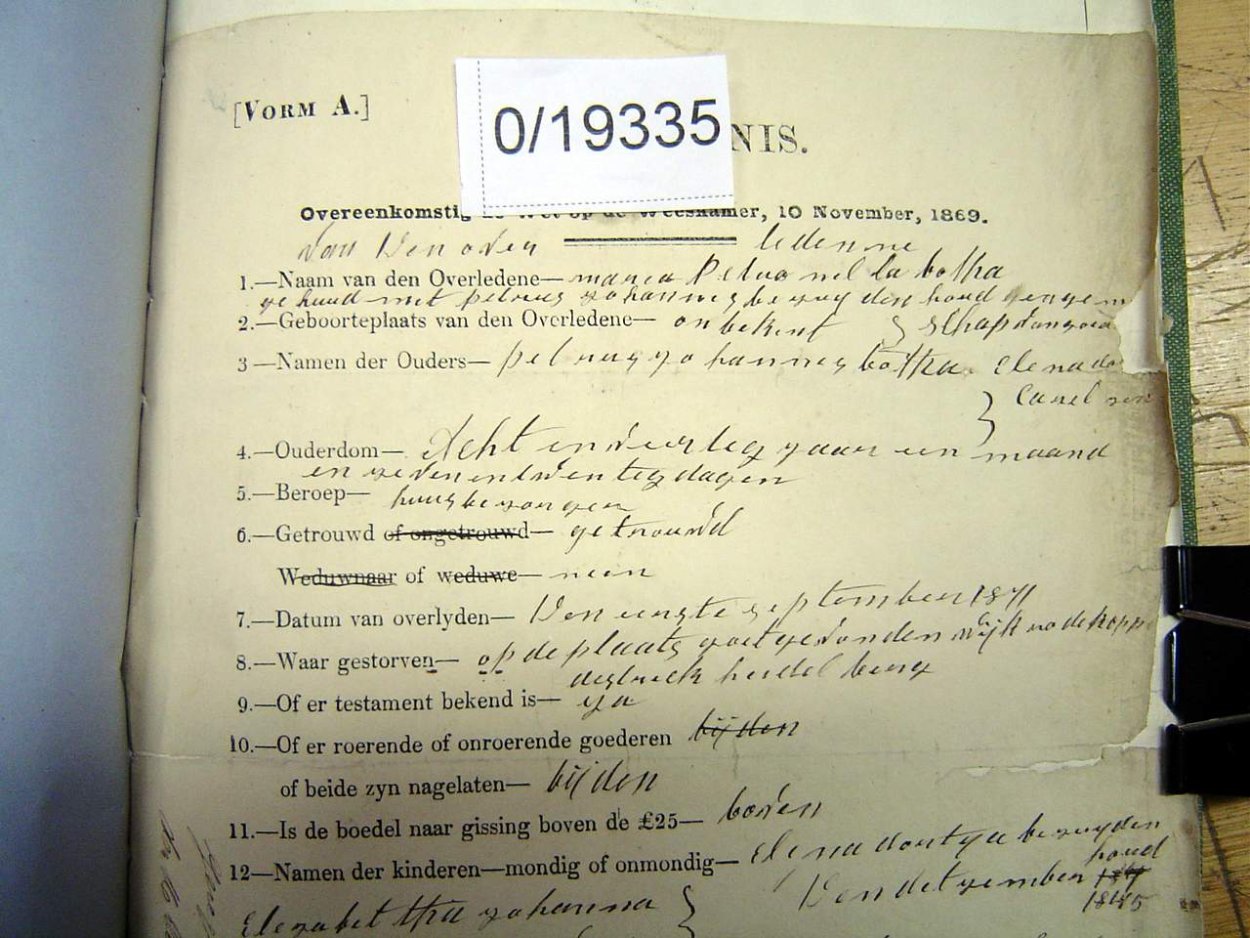 [VORM A.]
0/19335
NIS.
Overeenkomstig de Wet op de Weeskamer, 10 November, 1869.
van den over ledenne
1.—Naam van den Overledene— maria Petronella botha
gehuud met petrus yohannes bezuydenhoud
2.—Geboorteplaats van den Overledene— onbekent
3—Namen der Ouders— petrus yohannes botha. Elena
4.—Ouderdom— Acht en veerteg yaar een maand
en zevenentwenteg dagen
5.—Beroep—
6.—Getrouwd of ongetrouwd— getrouwd
Weduwnaar of weduwe— neen
7.—Datum van overlyden— Den eerste september 1871
8.—Waar gestorven— op de plaats goetgevonden wijk
destreck heidelberg
9.—Of er testament bekend is— ya
10.—Of er roerende of onroerende goederen bijden
of beide zyn nagelaten— bijden
11.—Is de boedel naar gissing boven de £25— boven
12—Namen der kinderen—mondig of onmondig— Elena dortya bezuyden
houd
Den detzember
1845
Elezabet tha yohanna